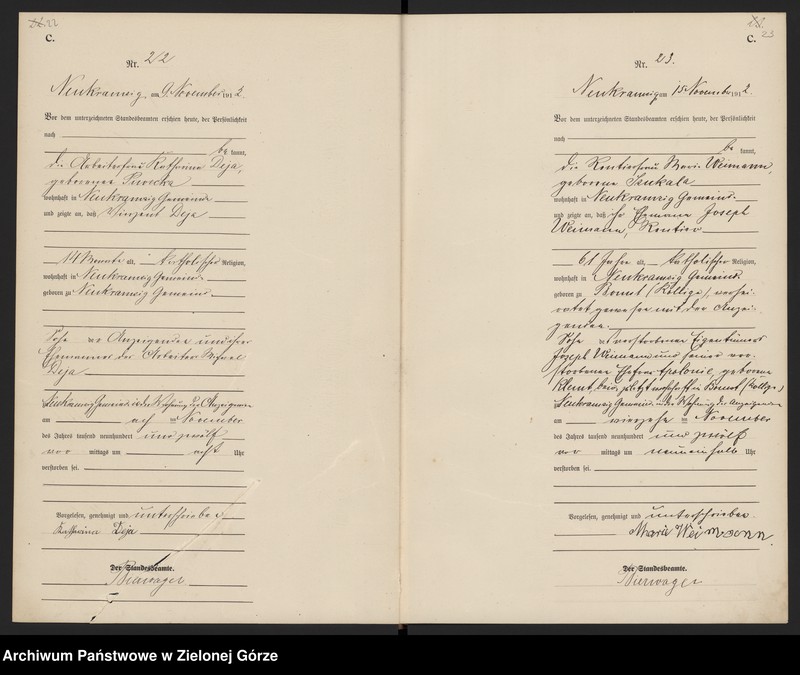 22
C.
Nr. 22
Neukramzig am 9. November 1912.
Vor dem unterzeichneten Standesbeamten erschien heute, der Persönlichkeit
nach
be kannt,
die Arbeiterfrau Katharina Deja,
geborene
wohnhaft in Neukramzig Gemeinde
und zeigte an, daß Vinzent Deja
14 Monate alt, katholischer Religion,
wohnhaft in Neukramzig Gemeinde
geboren zu Neukramzig Gemeinde
Sohn der Anzeigenden und ihres
Ehemannes des Arbeiters
Deja
Neukramzig Gemeinde in der Wohnung der Anzeigenden
am acht November
des Jahres tausend neunhundert und zwölf
vor mittags um acht Uhr
verstorben sei.
Vorgelesen, genehmigt und unterschrieben
Katharina Deja
Der Standesbeamte.
Bierwagen
23
C.
Nr. 23.
Neukramzig am 15 November 1912.
Vor dem unterzeichneten Standesbeamten erschien heute, der Persönlichkeit
nach
be kannt,
die Rentierfrau Marie Weimann,
geborene
wohnhaft in Neukramzig Gemeinde
und zeigte an, daß ihr Ehemann Joseph
Weimann, Rentier
61 Jahre alt, katholischer Religion,
wohnhaft in Neukramzig Gemeinde
geboren zu Bomst (Kollige), verhei-
ratet gewesen mit der Anzei-
genden.
Sohn des verstorbenen Eigentümers
Joseph Weimann und seiner ver-
storbenen Ehefrau Apolonie, geborene
Klemt, beide zuletzt wohnhaft in Bomst (Kollige)
Neukramzig Gemeinde in der Wohnung der Anzeigenden
am vierzehn November
des Jahres tausend neunhundert und zwölf
vor mittags um neuneinhalb Uhr
verstorben sei.
Vorgelesen, genehmigt und unterschrieben.
Marie Weimann.
Der Standesbeamte.
Bierwagen
Archiwum Państwowe w Zielonej Górze